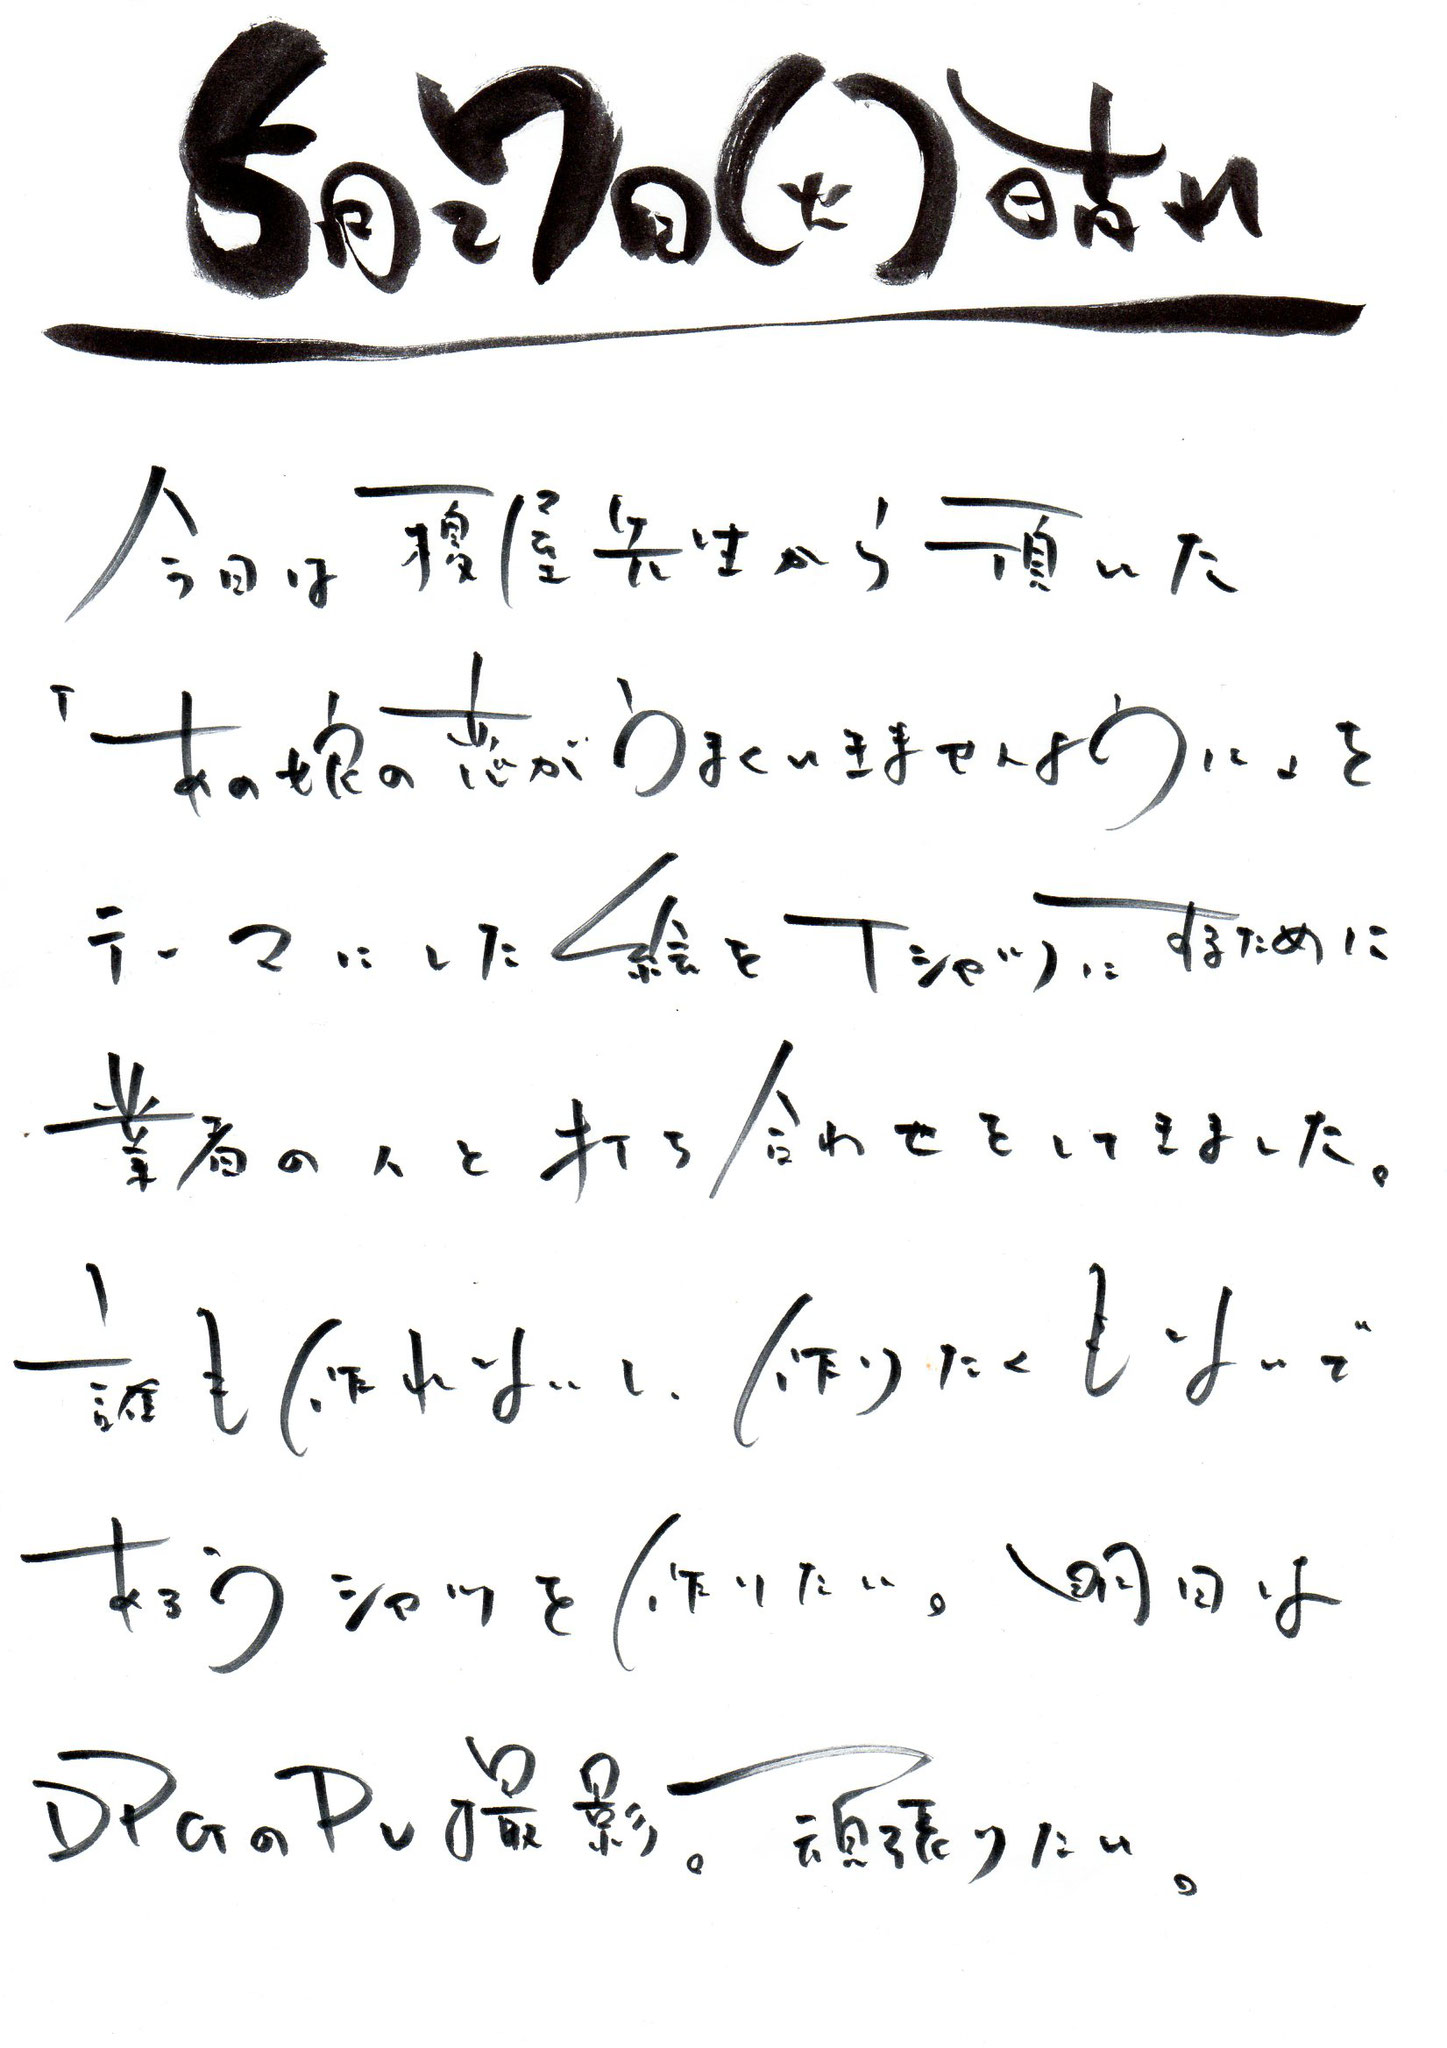 5月27日(火)晴れ
今日は榎屋先生から頂いた
「あの娘の恋がうまくいきませんように」を
テーマにした絵をTシャツにするために
業者の人と打ち合わせをしてきました。
誰も作れないし、作りたくもないで
あろうシャツを作りたい。明日は
DPGのPV撮影。頑張りたい。